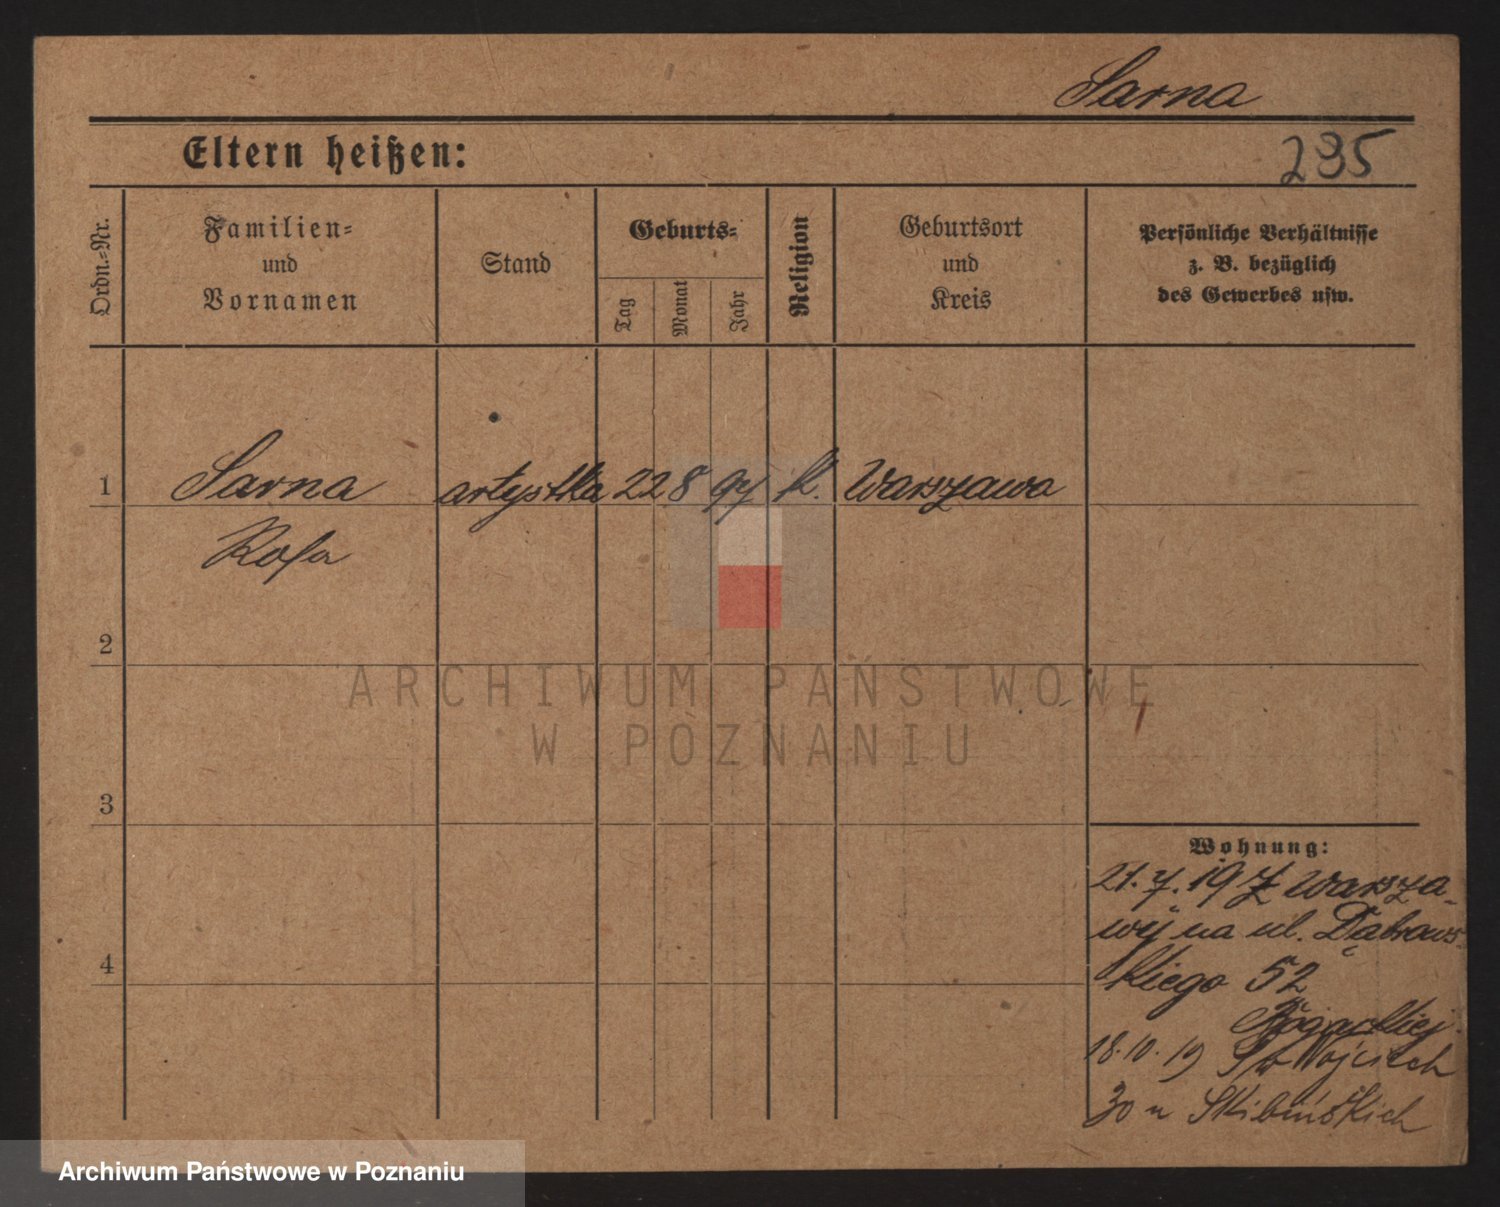 Sarna
Eltern heißen:
235
Ordn.-Nr.
Familien-
und
Vornamen
Stand
Geburts-
Tag
Monat
Jahr
Religion
Geburtsort
und
Kreis
Persönliche Verhältnisse
z. B. bezüglich
des Gewerbes usw.
1 Sarna artystka 22 8 97 k. Warszawa
Rosa
2
3
4
Wohnung:
21.7.19 z Warsza-
wy na ul. Dąbrows-
kiego 52
18.10.19 Św Wojciech
30 u Skibińskich
ARCHIWUM PAŃSTWOWE
W POZNANIU
Archiwum Państwowe w Poznaniu